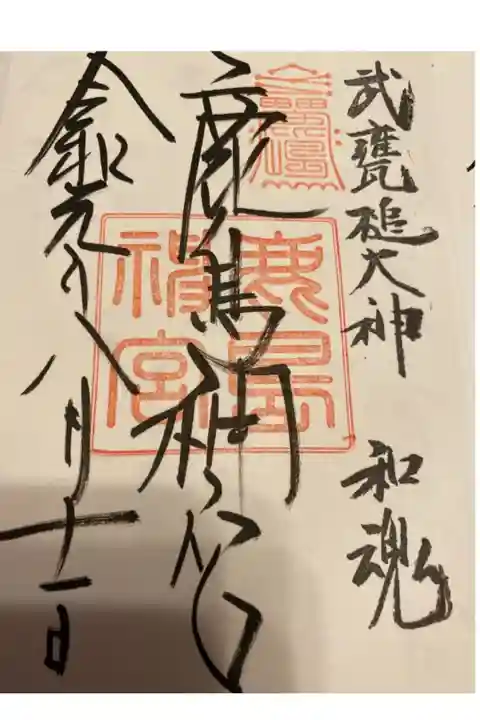 武甕槌大神 和魂
鹿島神宮
鹿島神宮
令和元年八月十一日